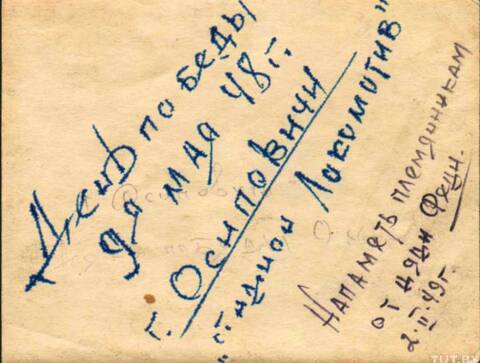 День победы
9го мая 48 г.
г. Осиповичи
"стадион Локомотив"
Напамять племянникам
от дяди Феди.
2.II.49г.
TUT.BY